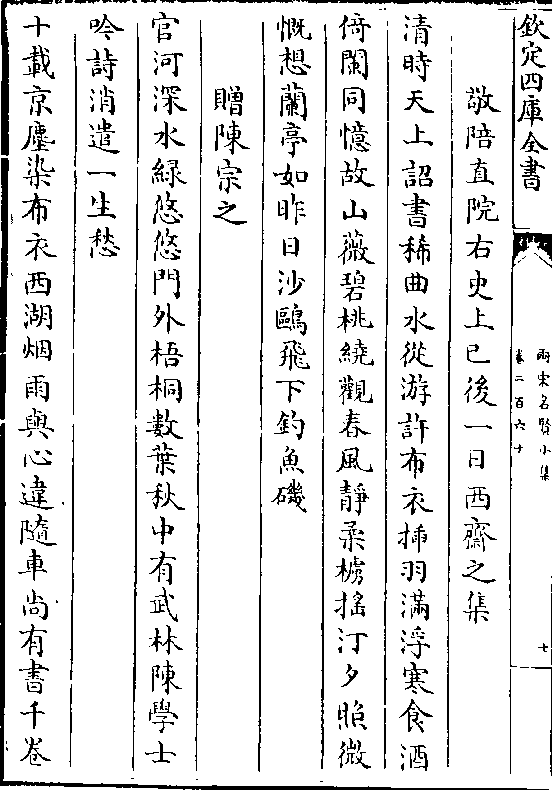 欽定四庫全書
兩宋名賢小集
卷二百六十
七
敬陪直院右史上巳後一日西齋之集
清時天上詔書稀曲水從游許布衣揷羽滿浮寒食酒
倚闌同憶故山薇碧桃繞觀春風靜柔櫓搖汀夕照微
慨想蘭亭如昨日沙鷗飛下釣魚磯
贈陳宗之
官河深水緑悠悠門外梧桐數葉秋中有武林陳學士
吟詩消遣一生愁
十載京塵染布衣西湖烟雨與心違隨車尚有書千卷